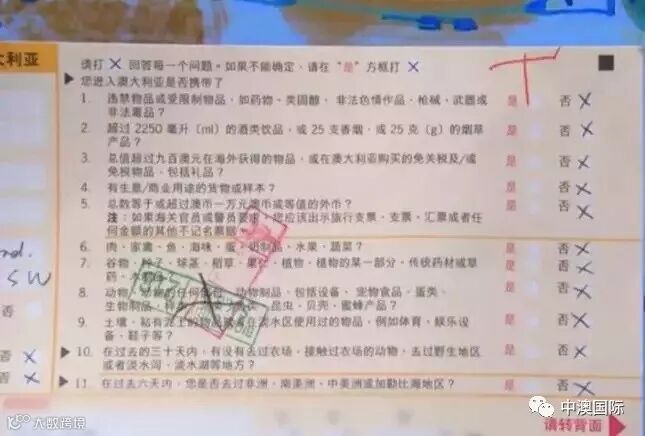 大利亚
请打 X 回答每一个问题。如果不能确定，请在“是”方框打 X
您进入澳大利亚是否携带了
1. 违禁物品或受限制物品，如药物、类固醇、非法色情作品、枪械、武器或
非法毒品？ 是 否 X
2. 超过 2250 毫升（ml）的酒类饮品，或 25 支香烟，或 25 克（g）的烟草
产品？ 是 否 X
3. 总值超过九百澳元在海外获得的物品，或在澳大利亚购买的免关税及/或
免税物品，包括礼品？ 是 否 X
4. 有生意/商业用途的货物或样本？ 是 否 X
5. 总数等于或超过澳币一万元澳币或等值的外币？ 是 否 X
注：如果海关官员或警员要求，您应该出示旅行支票、支票、汇票或者任
何金额的其他不记名票据
6. 肉、家禽、鱼、海味、蛋、奶制品、水果、蔬菜？ 是 否 X
7. 谷物、种子、球茎、稻草、果仁、植物、植物的某一部分、传统药材或草
药、木 是 否 X
8. 动物、动物的任何 动物制品，包括设备、宠物食品、蛋类、
生物制品、 昆虫、贝壳、蜜蜂产品？ 是 否 X
9. 土壤，粘有泥土的物品或者在淡水区使用过的物品，例如体育、娱乐设
备、鞋子等？ 是 否 X
10. 在过去的三十天内，有没有去过农场、接触过农场的动物、去过野生地区
或者淡水河、淡水湖等地方？ 是 否 X
11. 在过去六天内，您是否去过非洲、南美洲、中美洲或加勒比海地区？ 是 否 X
nd.
SW
否
否 X
否 X
请转背面
中澳国际
大数跨境